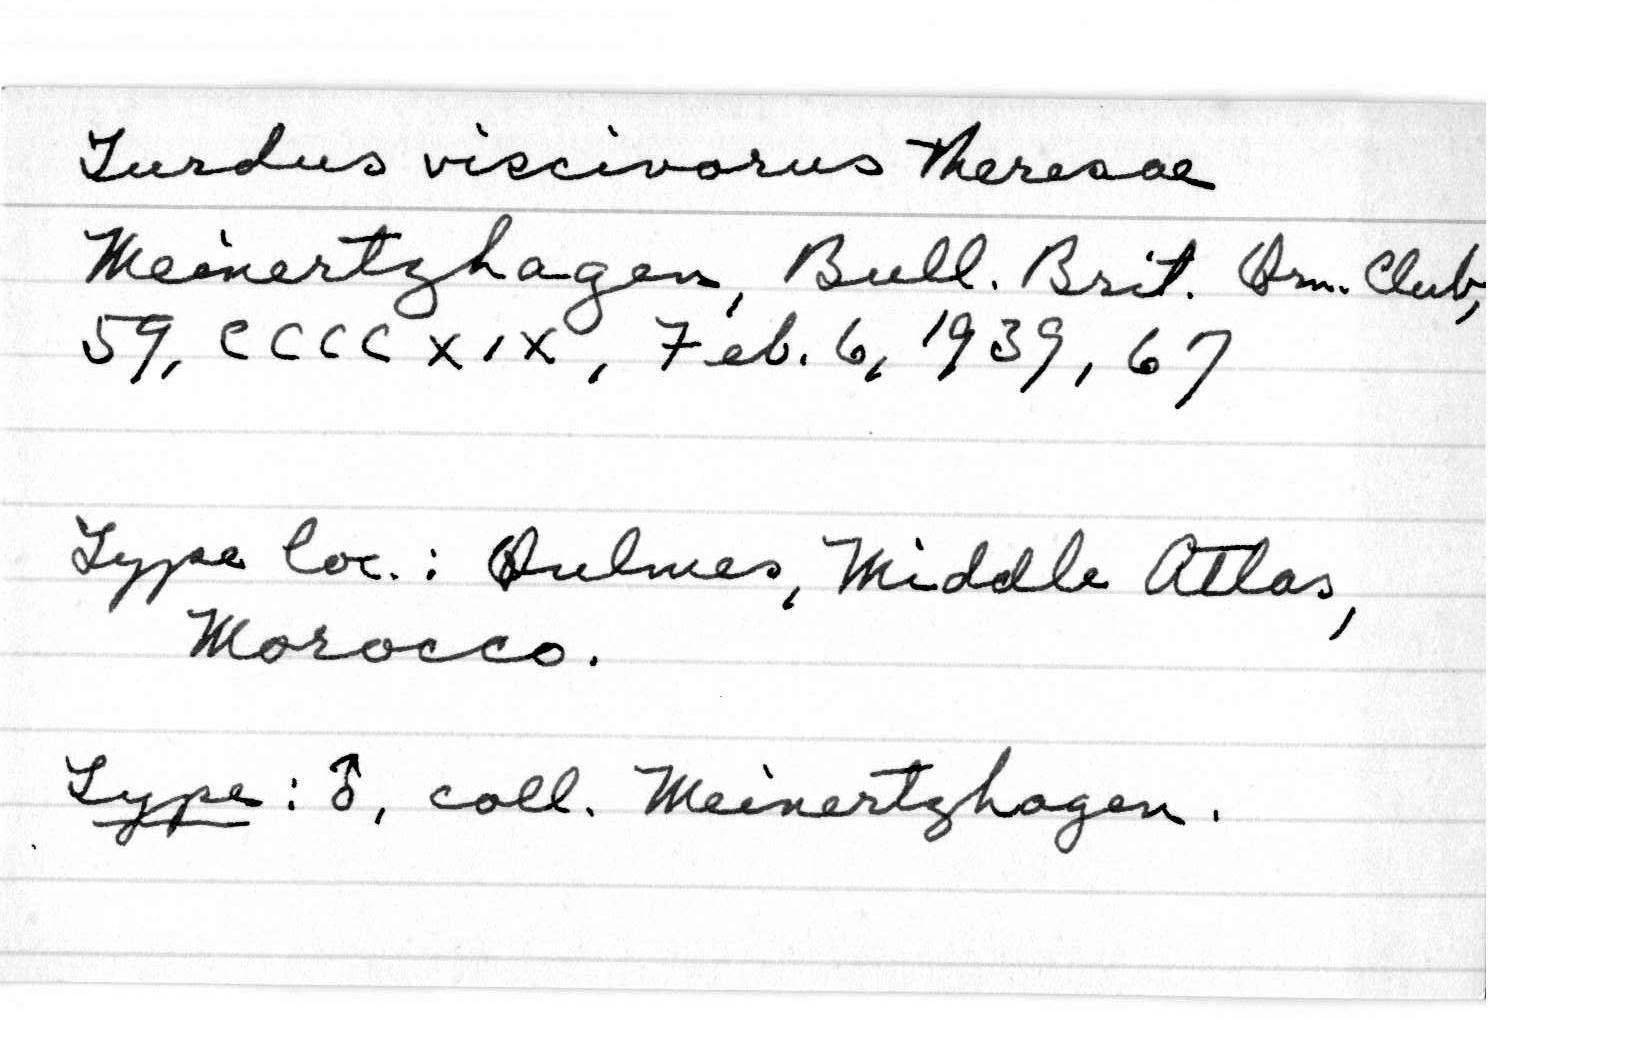 Turdus viscivorus theresae
Meinertzhagen, Bull. Brit. Orn. Club,
59, CCCCXIX, Feb. 6, 1939, 67
Type loc.: Oulmes, Middle Atlas,
Morocco.
Type: ♂, coll. Meinertzhagen.